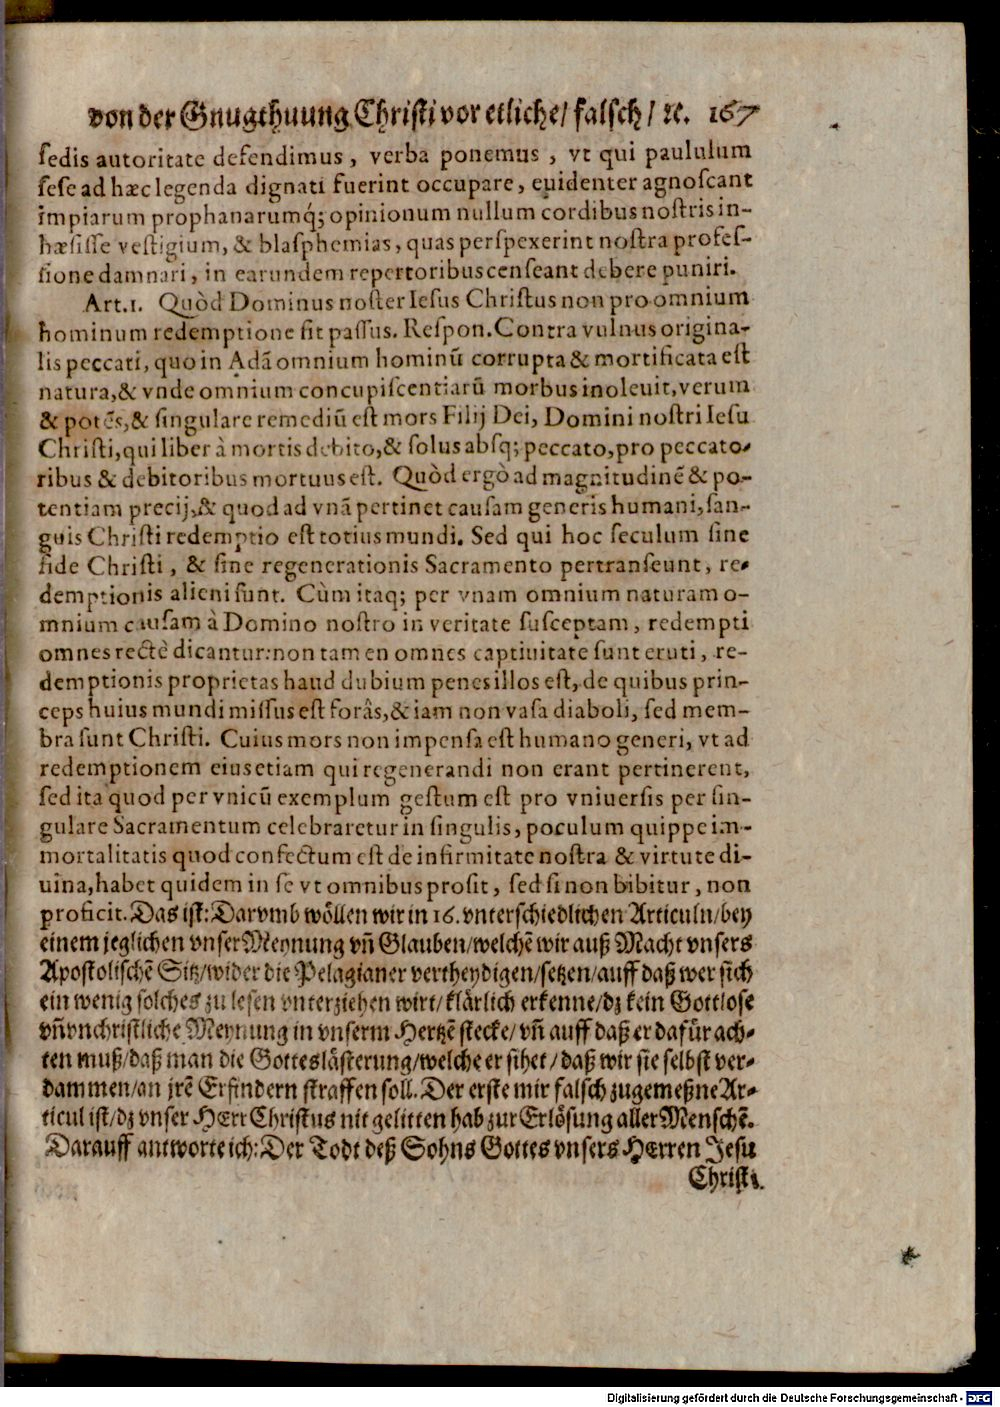 von der Gnugthuung Christi vor etliche/ falsch/ ꝛc. 167
sedis autoritate defendimus, verba ponemus, vt qui paululum
sese ad hæc legenda dignati fuerint occupare, euidenter agnoscant
impiarum prophanarumq́; opinionum nullum cordibus nostris in-
hæsisse vestigium, & blasphemias, quas perspexerint nostra profes-
sione damnari, in earundem repertoribus censeant debere puniri.
Art. 1. Quòd Dominus noster Iesus Christus non pro omnium
hominum redemptione sit passus. Respon. Contra vulnus origina-
lis peccati, quo in Adā omnium hominū corrupta & mortificata est
natura, & vnde omnium concupiscentiarū morbus inoleuit, verum
& potēs, & singulare remediū est mors Filij Dei, Domini nostri Iesu
Christi, qui liber à mortis debito, & solus absq; peccato, pro peccato-
ribus & debitoribus mortuus est. Quòd ergò ad magnitudinē & po-
tentiam precij, & quod ad vnā pertinet causam generis humani, san-
guis Christi redemptio est totius mundi. Sed qui hoc seculum sine
fide Christi, & sine regenerationis Sacramento pertranseunt, re-
demptionis alieni sunt. Cùm itaq; per vnam omnium naturam o-
mnium causam à Domino nostro in veritate susceptam, redempti
omnes rectè dicantur: non tamen omnes captiuitate sunt eruti, re-
demptionis proprietas haud dubium penes illos est, de quibus prin-
ceps huius mundi missus est forâs, & iam non vasa diaboli, sed mem-
bra sunt Christi. Cuius mors non impensa est humano generi, vt ad
redemptionem eius etiam qui regenerandi non erant pertinerent,
sed ita quod per vnicū exemplum gestum est pro vniuersis per sin-
gulare Sacramentum celebraretur in singulis, poculum quippe im-
mortalitatis quod confectum est de infirmitate nostra & virtute di-
uina, habet quidem in se vt omnibus prosit, sed si non bibitur, non
proficit. Das ist: Darvmb wöllen wir in 16. vnterschiedlichen Articuln/ bey
einem jeglichen vnser Meynung vn̄ Glauben/ welchē wir auß Macht vnsers
Apostolischē Sitz/ wider die Pelagianer vertheydigen/ setzen/ auff daß wer sich
ein wenig solches zu lesen vnterziehen wirt/ klärlich erkenne/ dz kein Gottlose
vn̄ vnchristliche Meynung in vnserm Hertzē stecke/ vn̄ auff daß er dafür ach-
ten muß/ daß man die Gotteslästerung/ welche er sihet/ daß wir sie selbst ver-
dammen/ an jrē Erfindern straffen soll. Der erste mir falsch zugemeßne Ar-
ticul ist/ dz vnser HErr Christus nit gelitten hab zur Erlösung aller Menschē.
Darauff antworte ich: Der Todt deß Sohns Gottes vnsers HErren Jesu
Christi.
Digitalisierung gefördert durch die Deutsche Forschungsgemeinschaft - DFG